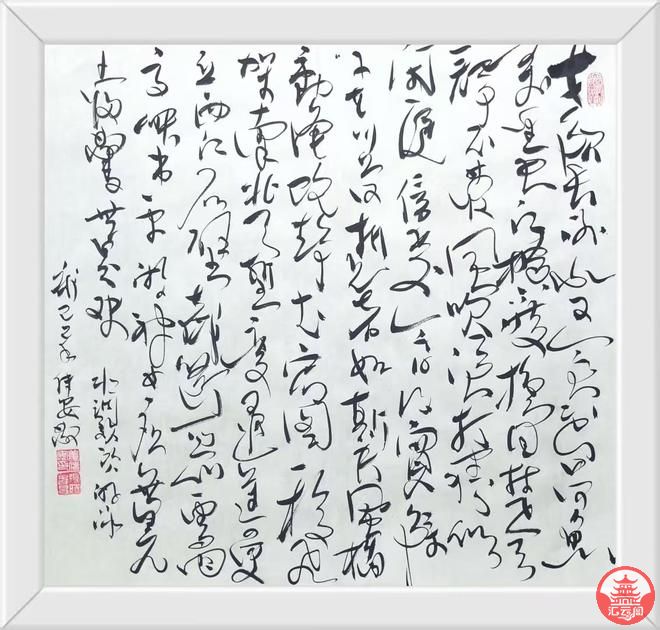 才饮长沙水又食武昌鱼
万里长江横渡极目楚天
舒不管风吹浪打胜似
闲庭信步今日得宽馀
子在川上曰逝者如斯夫风樯
动龟蛇静起宏图一桥飞
架南北天堑变通途更
立西江石壁截断巫山云雨
高峡出平湖神女应无恙
当惊世界殊
水调歌头游泳
汇云阁